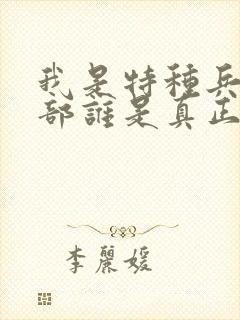 我是特種兵
部誰是真正
李麗媛